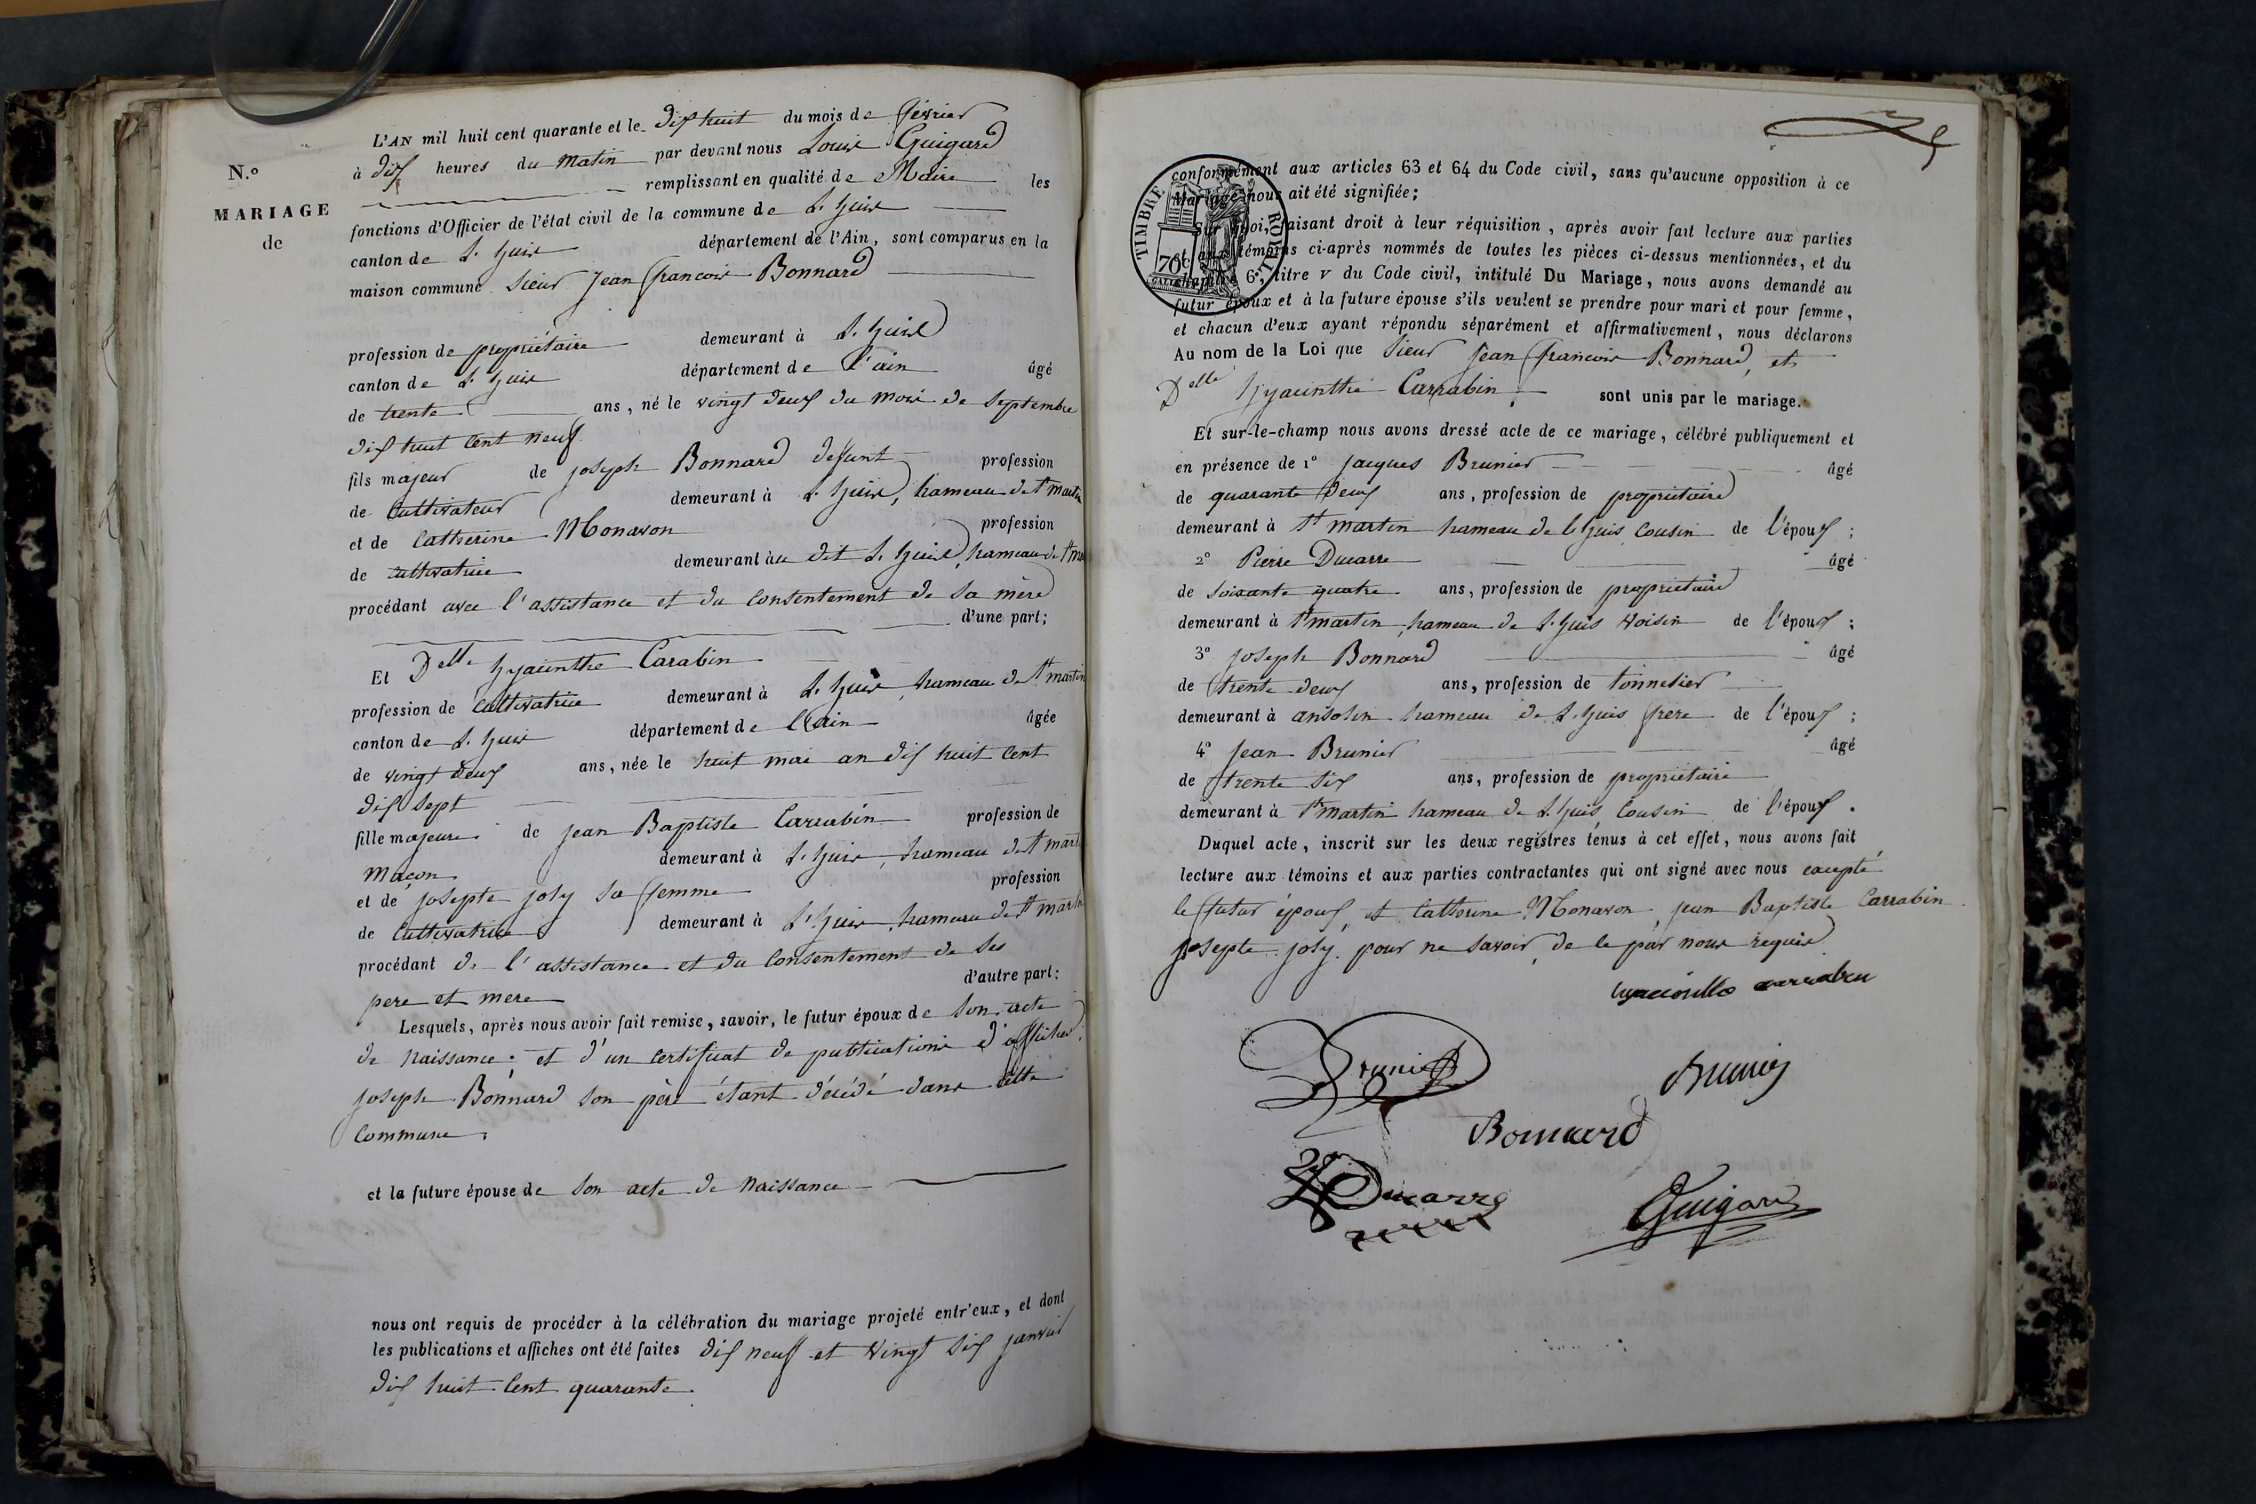 N.º
MARIAGE
de
L'AN mil huit cent quarante et le dix huit du mois de février
à dix heures du matin par devant nous Louis Guigard
remplissant en qualité de Maire les
fonctions d'Officier de l'état civil de la commune de L. huis
canton de L. huis département de l'Ain, sont comparus en la
maison commune Sieur Jean françois Bonnard
profession de propriétaire demeurant à L. huis
canton de L. huis département de l'ain âgé
de trente ans, né le vingt deux du mois de Septembre
dix huit cent neuf
fils majeur de joseph Bonnard deffunt profession
de Cultivateur demeurant à L. huis, hameau de St martin
et de Catherine Monavon profession
de cultivatrice demeurant àu dit L. huis, hameau de St
procédant avec l'assistance et du consentement de sa mère
d'une part;
Et Delle hyacinthe Carabin
profession de Cultivatrice demeurant à L. huis, hameau de St martin
canton de L. huis département de l'ain âgée
de vingt deux ans, née le huit mai an dix huit cent
dix sept
fille majeure de jean Baptiste Carrabin profession de
maçon demeurant à L. huis, hameau de St
et de josepte joly sa femme profession
de Cultivatrice demeurant à L. huis, hameau de St
procédant de l'assistance et du Consentement de ses
pere et mere d'autre part:
Lesquels, après nous avoir fait remise, savoir, le futur époux de son acte
de naissance; et d'un certificat de publications d'affiches;
joseph Bonnard son père étant décédé dans cette
Commune.
et la future épouse de son acte de naissance
nous ont requis de procéder à la célébration du mariage projeté entr'eux, et dont
les publications et affiches ont été faites dix neuf et vingt six janvier
dix huit cent quarante.
TIMBRE ROYAL
70c
conformément aux articles 63 et 64 du Code civil, sans qu'aucune opposition à ce
Mariage nous ait été signifiée;
Sur quoi, faisant droit à leur réquisition, après avoir fait lecture aux parties
et aux témoins ci-après nommés de toutes les pièces ci-dessus mentionnées, et du
chapitre 6, titre v du Code civil, intitulé Du Mariage, nous avons demandé au
futur époux et à la future épouse s'ils veulent se prendre pour mari et pour femme,
et chacun d'eux ayant répondu séparément et affirmativement, nous déclarons
Au nom de la Loi que Sieur jean françois Bonnard, et
Delle hyacinthe Carrabin, sont unis par le mariage.
Et sur-le-champ nous avons dressé acte de ce mariage, célébré publiquement et
en présence de 1º jacques Brunier âgé
de quarante deux ans, profession de propriétaire
demeurant à St martin hameau de L. huis Cousin de l'époux;
2º Pierre Ducarre âgé
de soixante quatre ans, profession de propriétaire
demeurant à St martin, hameau de L. huis voisin de l'époux;
3º joseph Bonnard âgé
de trente deux ans, profession de tonnelier
demeurant à ansolin hameau de L. huis frere de l'époux;
4º jean Brunier âgé
de trente six ans, profession de propriétaire
demeurant à St martin hameau de L. huis, Cousin de l'époux.
Duquel acte, inscrit sur les deux registres tenus à cet effet, nous avons fait
lecture aux témoins et aux parties contractantes qui ont signé avec nous excepté
le futur époux, et Catherine Monavon, jean Baptiste Carrabin
josepte joly, pour ne savoir, de le par nous requis
carrabin
Brunier
Brunier
Bonnard
Ducarre
Guigard